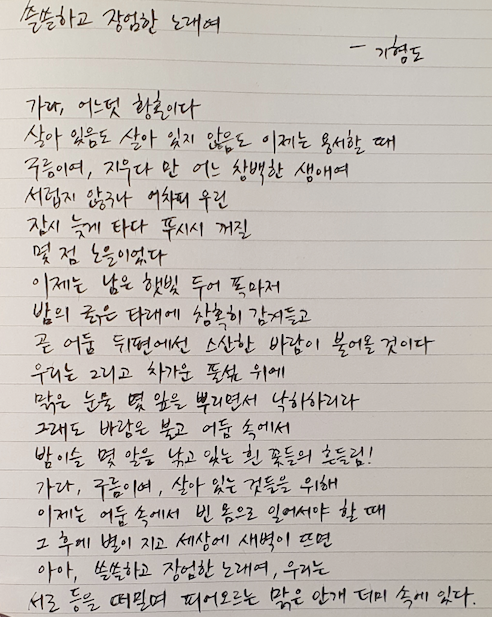 쓸쓸하고 장엄한 노래여
- 기형도
가라, 어느덧 황혼이다
살아 있음도 살아 있지 않음도 이제는 용서할 때
구름이여, 지우다 만 어느 창백한 생애여
서럽지 않구나 어차피 우린
잠시 늦게 타다 푸시시 꺼질
몇 점 노을이었다
이제는 남은 햇빛 두어 폭마저
밤의 굵은 타래에 참혹히 감겨들고
곧 어둠 뒤편에선 스산한 바람이 불어올 것이다
우리는 그리고 차가운 풀섶 위에
맑은 눈물 몇 잎을 뿌리면서 낙하하리라
그래도 바람은 불고 어둠 속에서
밤이슬 몇 알을 낚고 있는 흰 꽃들의 흔들림!
가라, 구름이여, 살아 있는 것들을 위해
이제는 어둠 속에서 빈 몸으로 일어서야 할 때
그 후에 별이 지고 세상에 새벽이 뜨면
아아, 쓸쓸하고 장엄한 노래여, 우리는
서로 등을 떠밀며 피어오르는 맑은 안개 더미 속에 있다.